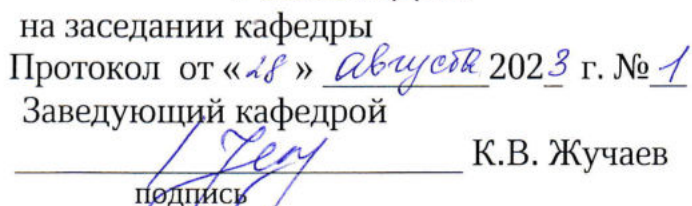 на заседании кафедры
Протокол от «28» августа 2023 г. № 1
Заведующий кафедрой
К.В. Жучаев
подпись